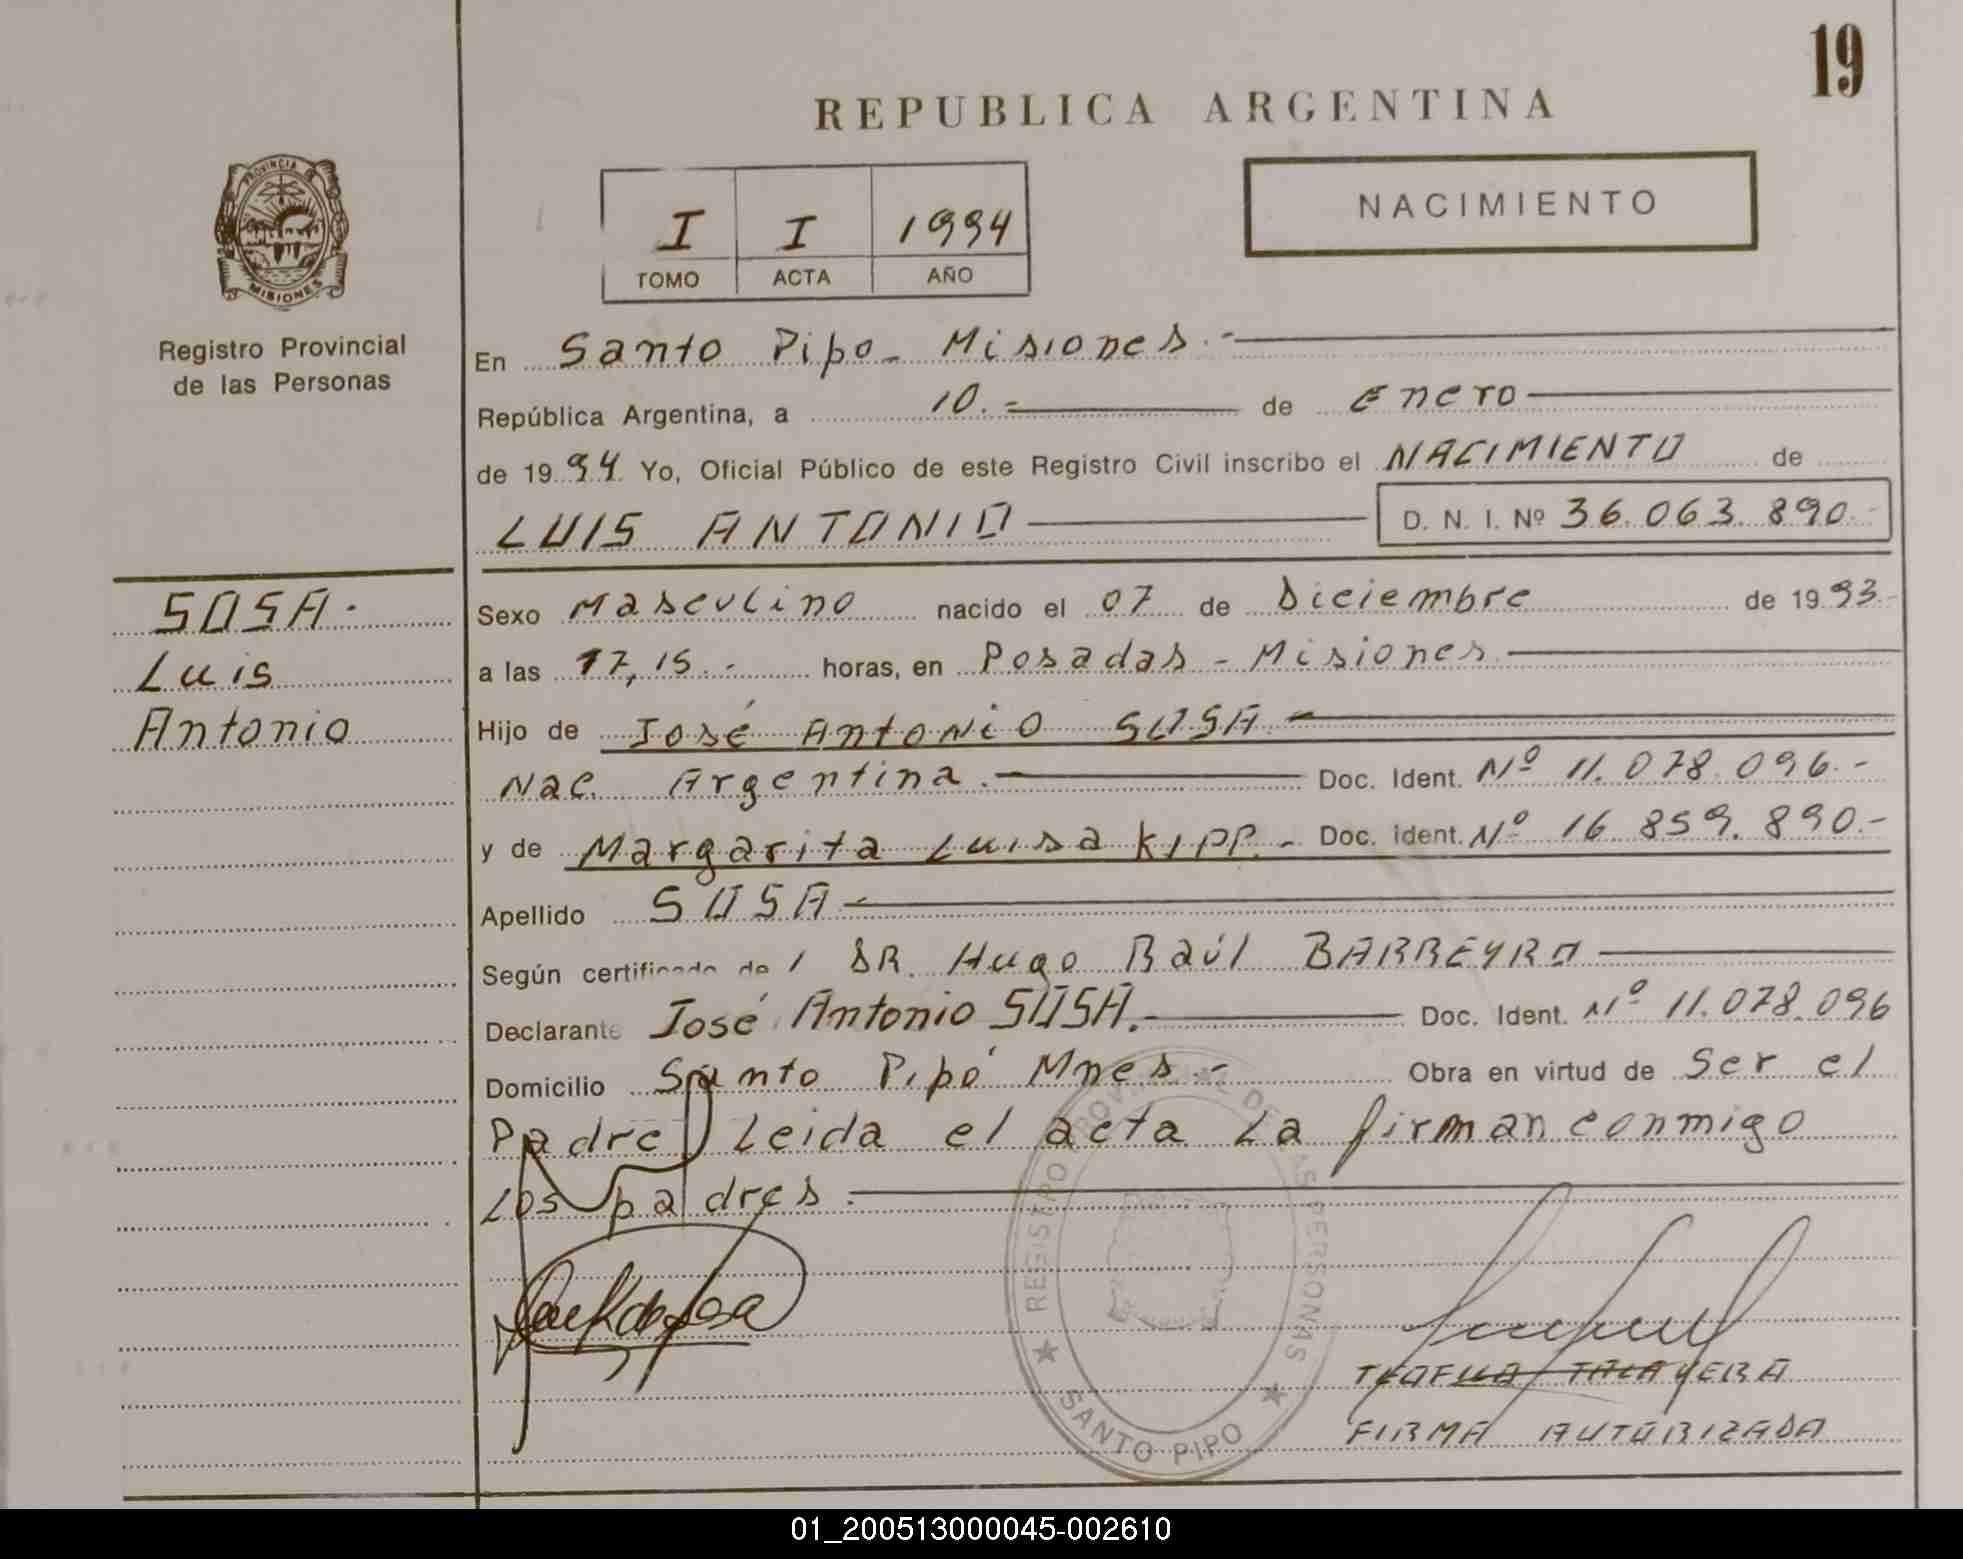 19
REPUBLICA ARGENTINA
PROVINCIA
MISIONES
Registro Provincial
de las Personas
I I 1994
TOMO ACTA AÑO
NACIMIENTO
En Santo Pipo - Misiones.-
República Argentina, a 10.- de Enero
de 1994. Yo, Oficial Público de este Registro Civil inscribo el NACIMIENTO de
LUIS ANTONIO D. N. I. Nº 36.063.890.-
SOSA.
Luis
Antonio
Sexo Masculino nacido el 07 de Diciembre de 1993.-
a las 17,15.- horas, en Posadas - Misiones.
Hijo de José Antonio SOSA -
Nac. Argentina. Doc. Ident. Nº 11.078.096.-
y de Margarita Luisa KIPP.- Doc. ident. Nº 16 859.890.-
Apellido SOSA
Según certificado de l DR. Hugo Raúl BARREYRO
Declarante José Antonio SOSA.- Doc. Ident. Nº 11.078.096
Domicilio Santo Pipó Mnes.- Obra en virtud de Ser el
Padre Leida el acta La firman conmigo
Los padres.
REGISTRO PROVINCIAL DE LAS PERSONAS
SANTO PIPO
TALAVERA
FIRMA AUTORIZADA
01_200513000045-002610